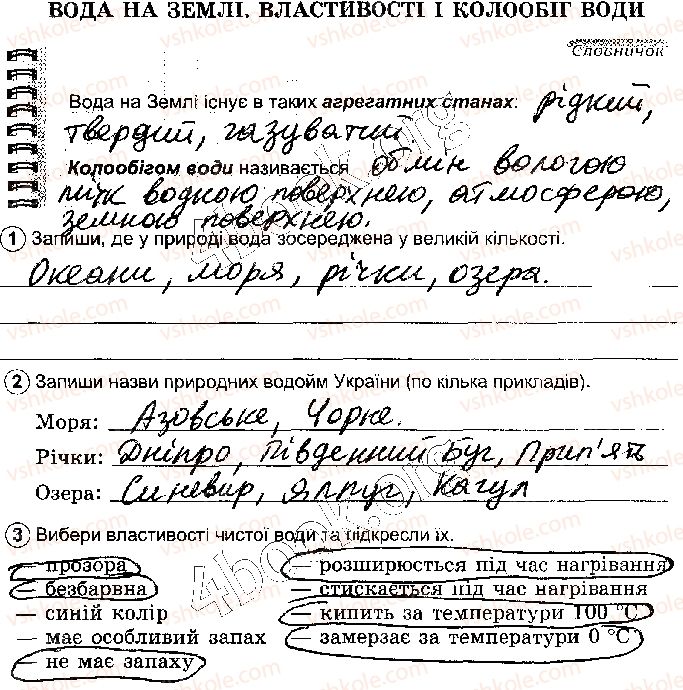 ВОДА НА ЗЕМЛІ. ВЛАСТИВОСТІ І КОЛООБІГ ВОДИ
Словничок
Вода на Землі існує в таких агрегатних станах: рідкий,
твердий, газуватий
Колообігом води називається обмін вологою
між водною поверхнею, атмосферою,
земною поверхнею.
1 Запиши, де у природі вода зосереджена у великій кількості.
Океани, моря, річки, озера.
2 Запиши назви природних водойм України (по кілька прикладів).
Моря: Азовське, Чорне.
Річки: Дніпро, Південний Буг, Прип'ять
Озера: Синевир, Ялпуг, Кагул
3 Вибери властивості чистої води та підкресли їх.
— прозора
— безбарвна
— синій колір
— має особливий запах
— не має запаху
— розширюється під час нагрівання
— стискається під час нагрівання
— кипить за температури 100 °C
— замерзає за температури 0 °C
4book.org
4book.org